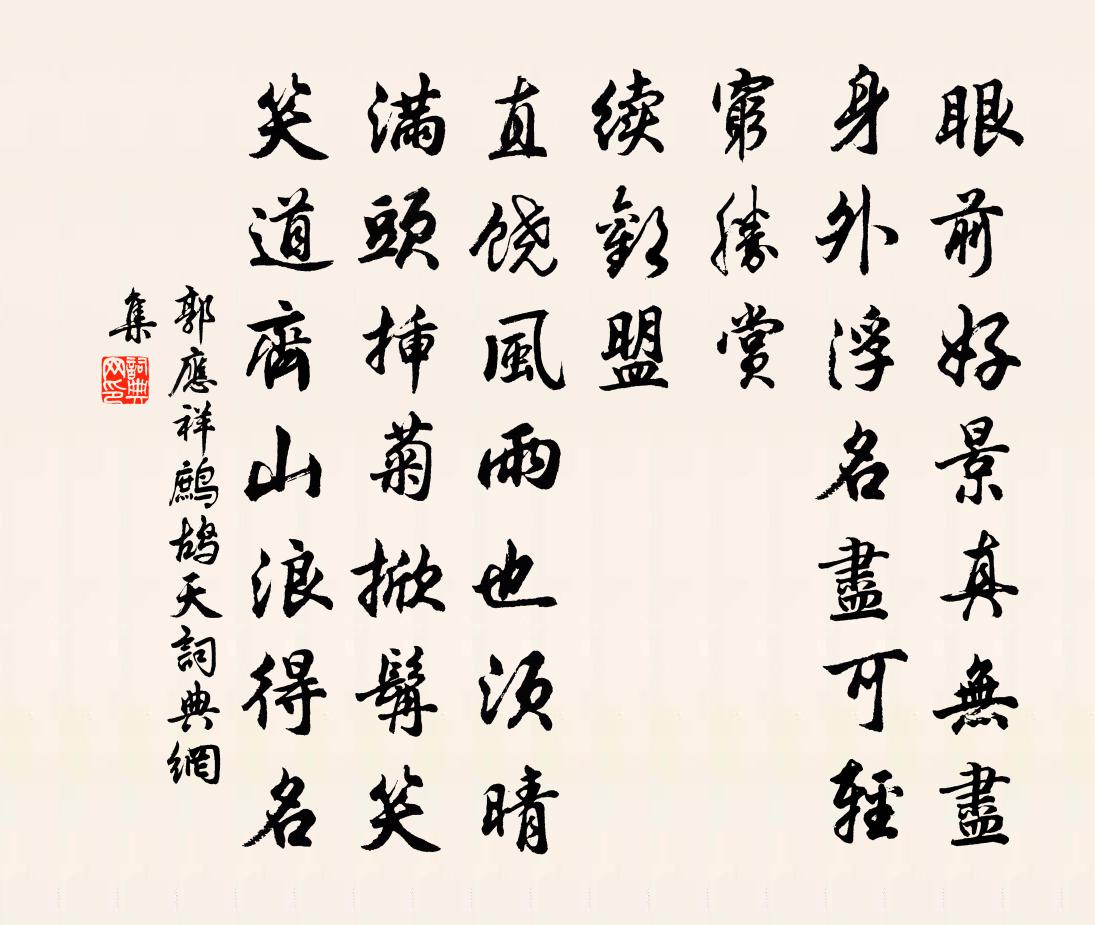 眼前好景真無盡
身外浮名盡可輕
窮勝賞
續歡盟
直饒風雨也須晴
滿頭插菊掀髯笑
笑道齊山浪得名
郭應祥鷓鴣天詞典網
集
詞典
网印